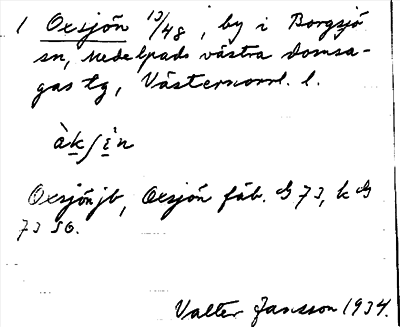 1 Oxsjön 13/48, by i Borgsjö
sn, Medelpads västra domsa-
gas tg, Västernorrl. l.
àkʃèn
Oxsjön jb, Oxsjön fäb. G 73, k G
73 SO.
Valter Jansson 1934.